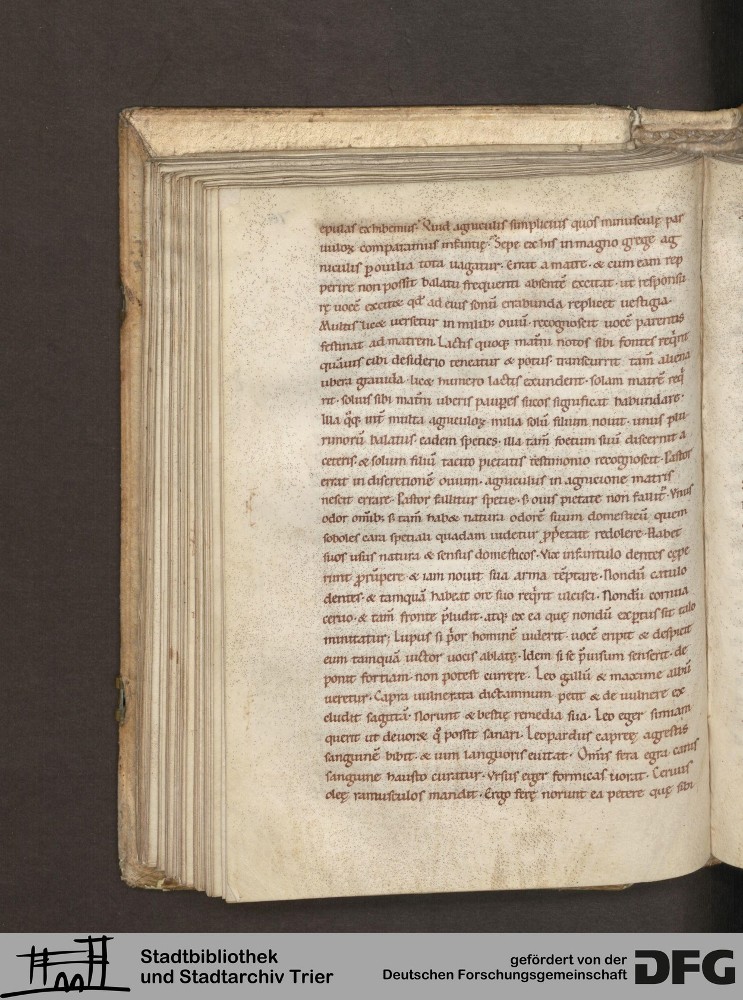 epulas exhibemus. Quid agniculis simplicius quos minusculę par
uuloꝝ comparamus infantię. Sepe ex his in magno grege ag
niculus ꝑ ouilia tota uagatur. Errat a matre. & cum eam rep
perire non possit balatu frequenti absentē excitat. ut responsu
rę uocē excit& qđ ad eius sonū errabunda replicet uestigia.
Multis lic& uersetur in milib; ouiū. recognoscit uocē parentis
festinat ad matrem. Lactis quoq; mat̄ni notos sibi fontes reqͥrit
quāuis cibi desiderio teneatur & potus. transcurrit tam̄ aliena
ubera grauida lic& humore lactis exundent. solam matrē reqͥ
rit. solius sibi mat̄ni uberis pauꝑes sucos significat habundare.
Illa qͦq; int̄ multa agniculoꝝ milia solū filium nouit. unus plu
rimorū balatus. eadem species. illa tam̄ foetum suū discernit a
ceteris. & solum filiū tacito pietatis testimonio recognoscit. Pastor
errat in discretione ouium. agniculus in agnicione matris
nescit errare. Pastor fallitur specie. s̄ ouis pietate non fallit̄. Vnus
odor om̄ib; s̄ tam̄ hab& natura odorē suum domesticū quem
soboles cara speciali quadam uidetur ꝓp̄etate redolere. Habet
suos usus natura & sensus domesticos. Vix infantulo dentes cępe
runt prūpere & iam nouit sua arma tēptare. Nondū catulo
dentes. & tamquā habeat ore suo reqͥrit ulcisci. Nondū cornua
ceruo. & tam̄ fronte p̄ludit. atq; ex ea quę nondū exꝑtus sit telo
minitatur; Lupus si pͥor hominē uiderit. uocē eripit & despicit
eum tamquā uictor uocis ablatę. Idem si se p̄uisum senserit. de
ponit
 non potest currere. Leo gallū & maxime albū
ueretur. Capra uulnerata dictamnum petit & de uulnere ex
cludit sagittā. Norunt & bestię remedia sua. Leo eger simiam
querit ut deuor& qͦ possit sanari. Leopardus capreę agrestis
sanguinē bibit. & uim languoris euitat. Om̄is fera egra canis
sanguine hausto curatur. Vrsus eger formicas uorat. Ceruus
oleę ramusculos mandit. Ergo ferę norunt ea petere quę sibi
Stadtbibliothek
und Stadtarchiv Trier
gefördert von der
Deutschen Forschungsgemeinschaft
DFG